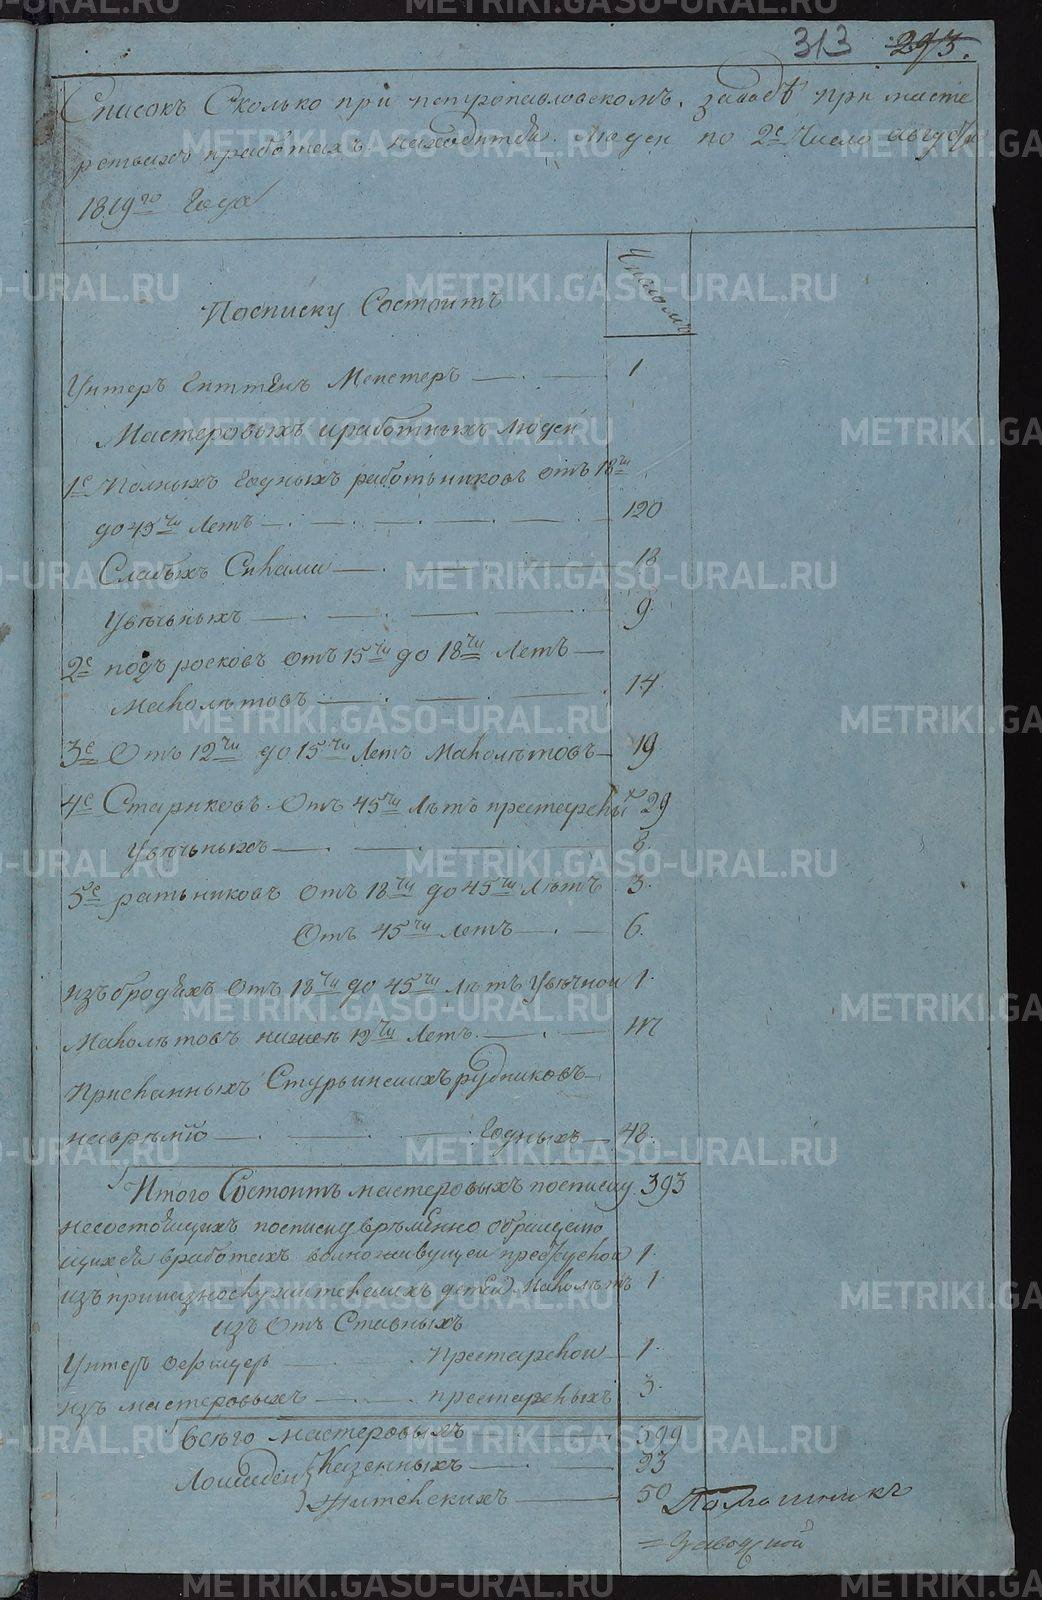 313 293.
Списокъ Сколько при петропавловскомъ. заводѣ при масте
рствахъ иработахъ находитца людеи по 2е Число августа
1819го Года
Числомъ
Посписку Состоитъ
Унтеръ Гиттенъ Меистеръ 1
Мастеровыхъ иработныхъ людеи
1е Полныхъ Годныхъ работьниковъ отъ 18ти
до 45ти Летъ 120
Слабыхъ Силами 18
Увѣчьныхъ 9.
2е подъросковъ отъ 15ти до 18ти Летъ
Малолѣтовъ 14
3е Отъ 12ти до 15ти Летъ Малолѣтовъ 19
4е Стариковъ. Отъ 45ти Лѣтъ престарелыхъ 29
Увѣчьныхъ 8.
5е ратьниковъ отъ 18ти до 45ти Лѣтъ 3.
Отъ 45ти Летъ 6.
изъ бродягъ отъ 18ти до 45ти Лѣтъ Увѣчнои 1.
Малолѣтовъ ниже 12ти Летъ
Присланныхъ Стурьинскихъ рудниковъ
наврѣмя Годныхъ 48.
Итого Состоитъ мастеровыхъ посписку 393
несостоящихъ посписку врѣменно обращаю
щихся вработахъ волноживущеи 1.
изъ детеи Малолѣтъ 1
изъ Отъ Ставныхъ
Унтеръ офицеръ Престарелои 1.
изъ мастеровыхъ престарелыхъ 3.
Всѣго мастеровыхъ 399
Лошадеи Казенныхъ 33
Жителскихъ 50
Помошникъ
Заводской